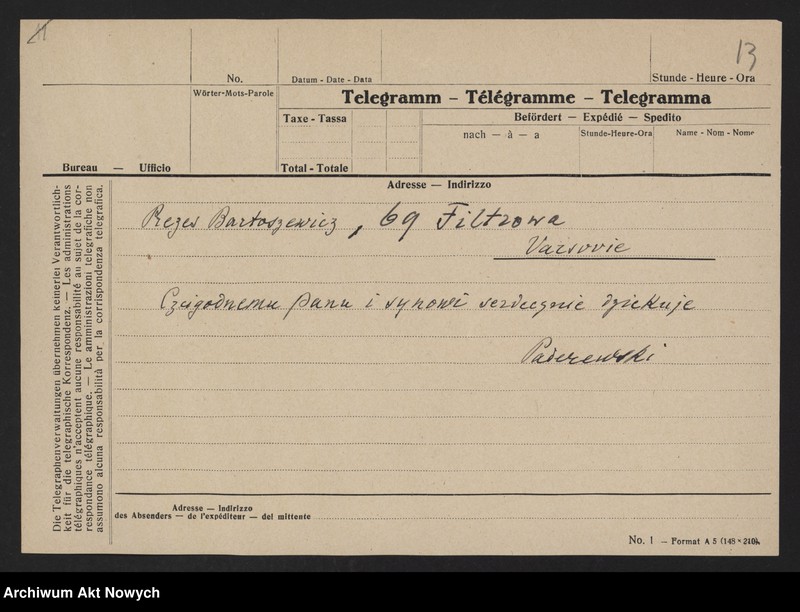 13
No.
Datum - Date - Data
Stunde - Heure - Ora
Wörter-Mots-Parole
Telegramm – Télégramme – Telegramma
Taxe - Tassa
Befördert — Expédié — Spedito
nach — à — a
Stunde-Heure-Ora
Name - Nom - Nome
Bureau — Ufficio
Total - Totale
Adresse — Indirizzo
Rezes Bartoszewicz, 69 Filtrowa
Varsovie
Czcigodnemu panu i synowi serdecznie dziekuje
Paderewski
Die Telegraphenverwaltungen übernehmen keinerlei Verantwortlich-
keit für die telegraphische Korrespondenz. — Les administrations
télégraphiques n'acceptent aucune responsabilité au sujet de la cor-
respondance télégraphique. — Le amministrazioni telegrafiche non
assumono alcuna responsabilità per la corrispondenza telegrafica.
Adresse — Indirizzo
des Absenders — de l'expéditeur — del mittente
No. 1 — Format A 5 (148 × 210).
Archiwum Akt Nowych